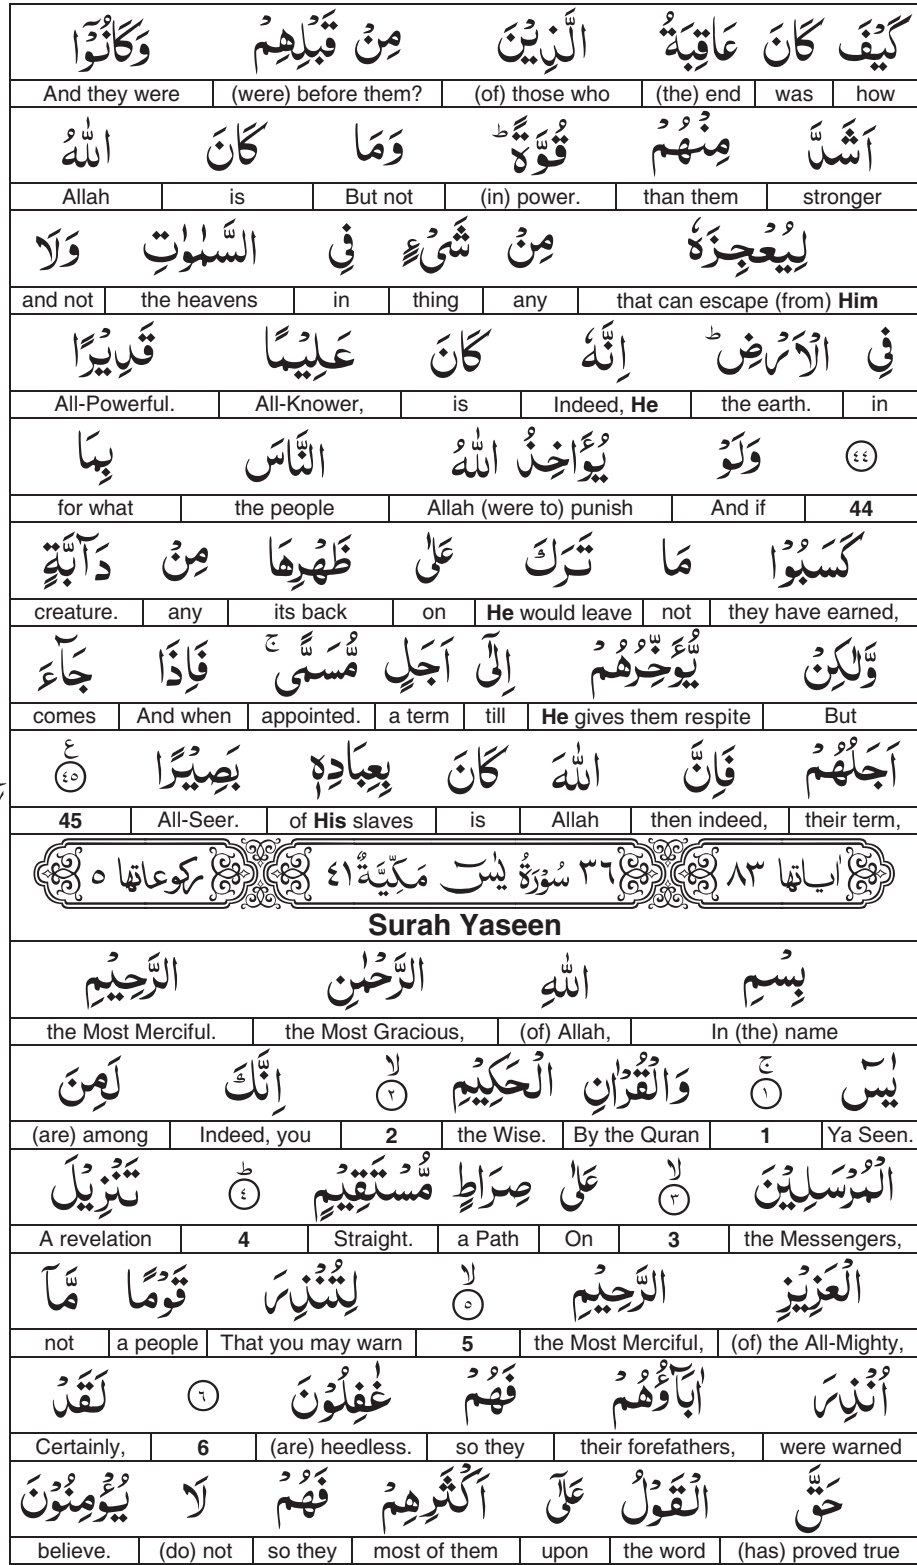 كَيْفَ كَانَ عَاقِبَةُ الَّذِيْنَ مِنْ قَبْلِهِمْ وَكَانُوْۤا
how was (the) end (of) those who (were) before them? And they were
اَشَدَّ مِنْهُمْ قُوَّةً ؕ وَمَا كَانَ اللّٰهُ
stronger than them (in) power. But not is Allah
لِيُعْجِزَهٗ مِنْ شَىْءٍ فِى السَّمٰوٰتِ وَلَا
that can escape (from) Him any thing in the heavens and not
فِى الْاَرْضِ ؕ اِنَّهٗ كَانَ عَلِيْمًا قَدِيْرًا
in the earth. Indeed, He is All-Knower, All-Powerful.
٤٤ وَلَوْ يُؤَاخِذُ اللّٰهُ النَّاسَ بِمَا
44 And if Allah (were to) punish the people for what
كَسَبُوْا مَا تَرَكَ عَلٰى ظَهْرِهَا مِنْ دَآبَّةٍ
they have earned, not He would leave on its back any creature.
وَّلٰكِنْ يُّؤَخِّرُهُمْ اِلٰٓى اَجَلٍ مُّسَمًّى ۚ فَاِذَا جَآءَ
But He gives them respite till a term appointed. And when comes
اَجَلُهُمْ فَاِنَّ اللّٰهَ كَانَ بِعِبَادِهٖ بَصِيْرًا ٤٥ ع
their term, then indeed, Allah is of His slaves All-Seer. 45
اٰیاتها ٨٣ ٣٦ سُوْرَةُ يٰسٓ مَكِّيَّةٌ ٤١ ركوعاتها ٥
Surah Yaseen
بِسْمِ اللّٰهِ الرَّحْمٰنِ الرَّحِيْمِ
In (the) name (of) Allah, the Most Gracious, the Most Merciful.
يٰسٓ ۚ ١ وَالْقُرْاٰنِ الْحَكِيْمِ ۙ ٢ اِنَّكَ لَمِنَ
Ya Seen. 1 By the Quran the Wise. 2 Indeed, you (are) among
الْمُرْسَلِيْنَ ۙ ٣ عَلٰى صِرَاطٍ مُّسْتَقِيْمٍ ؕ ٤ تَنْزِيْلَ
the Messengers, 3 On a Path Straight. 4 A revelation
الْعَزِيْزِ الرَّحِيْمِ ۙ ٥ لِتُنْذِرَ قَوْمًا مَّاۤ
(of) the All-Mighty, the Most Merciful, 5 That you may warn a people not
اُنْذِرَ اٰبَآؤُهُمْ فَهُمْ غٰفِلُوْنَ ٦ لَقَدْ
were warned their forefathers, so they (are) heedless. 6 Certainly,
حَقَّ الْقَوْلُ عَلٰٓى اَكْثَرِهِمْ فَهُمْ لَا يُؤْمِنُوْنَ
(has) proved true the word upon most of them so they (do) not believe.